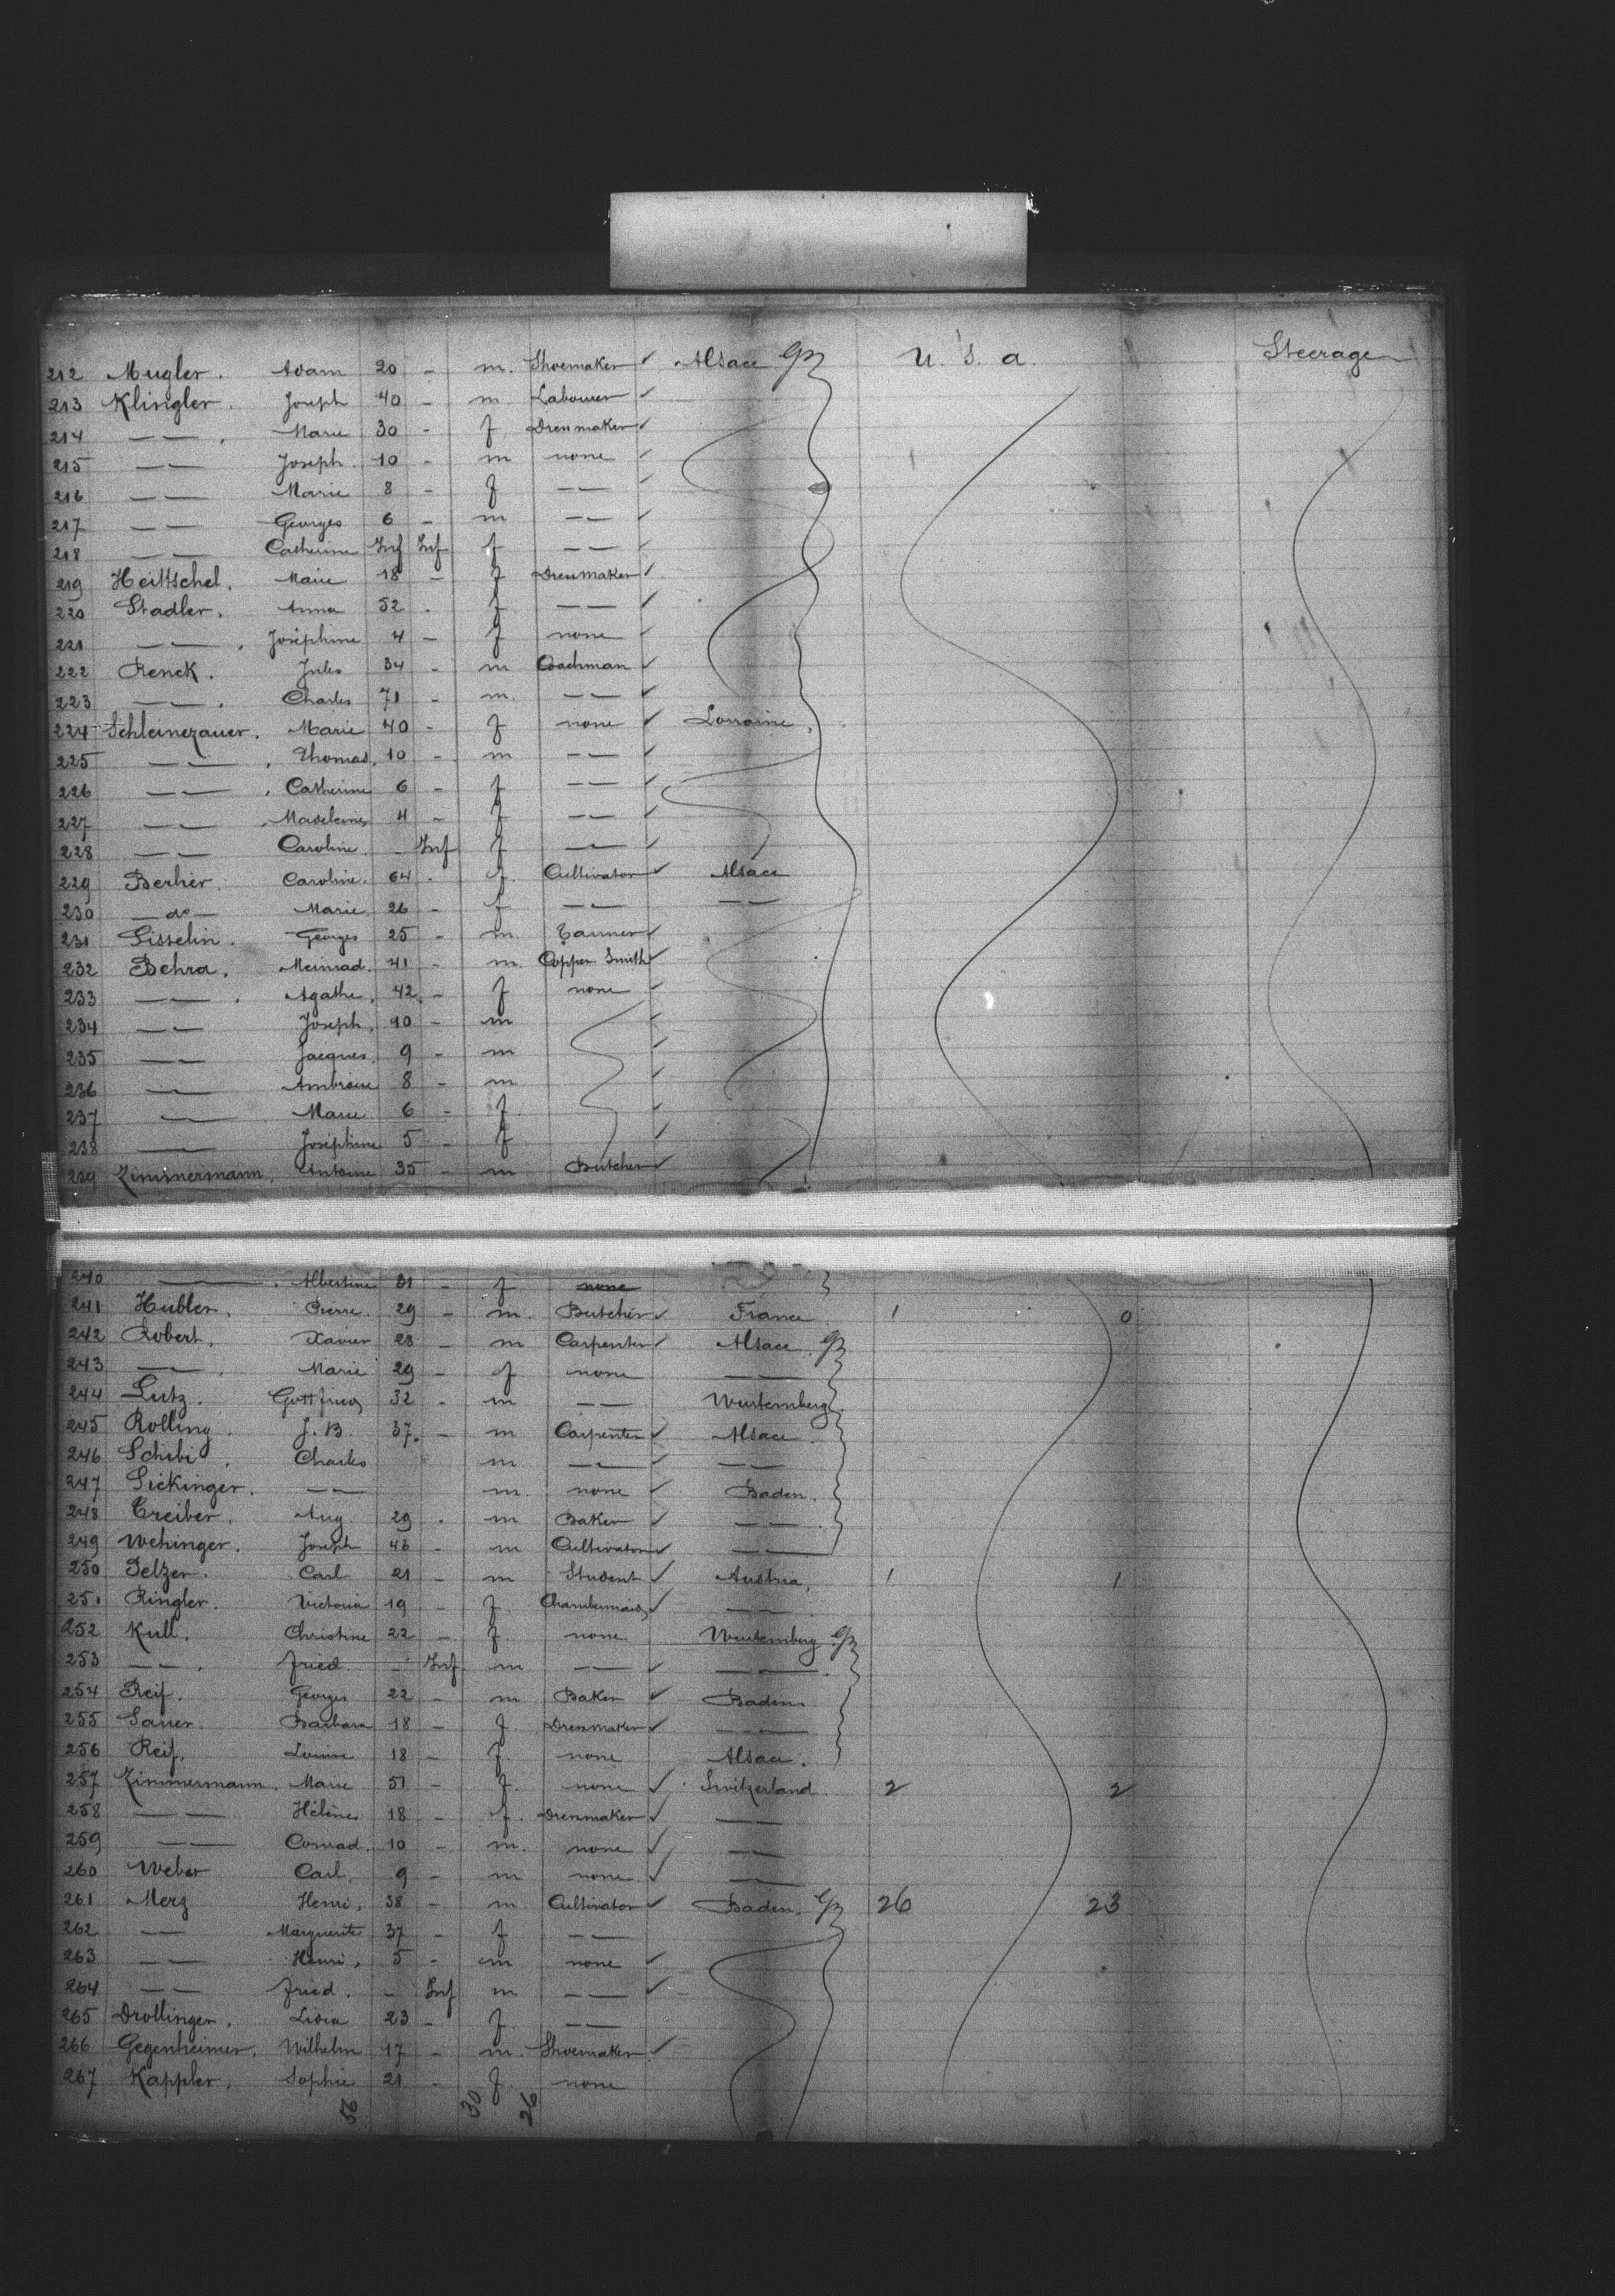 212 Mugler. Adam 20 - m. Shoemaker ✓ Alsace U. S. a. Steerage
213 Klingler. Joseph 40 - m Labourer ✓
214 —— . Marie 30 - f Dressmaker ✓
215 —— Joseph. 10 - m none ✓
216 —— Marie 8 - f —— ✓
217 —— Georges 6 - m —— ✓
218 —— Catherine Inf Inf f —— ✓
219 Heittschel. Marie 18 - f Dressmaker ✓
220 Stadler. Anna 52 - f. —— ✓
221 —— . Joséphine 4 - f none ✓
222 Renck. Jules 34 - m Coachman ✓
223 —— . Charles 71 - m. —— ✓
224 Schleinezauer. Marie 40 - f none ✓ Lorraine.
225 —— . Thomas. 10 - m —— ✓
226 —— . Catherine 6 - f —— ✓
227 —— . Madeleine 4 - f —— ✓
228 —— Caroline. - Inf f —— ✓
229 Berhier. Caroline. 64 - f. Cultivator ✓ Alsace
230 — do — Marie 26 - f —— ——
231 Sisselin. Georges 25 - m Tanner ✓
232 Behra. Meinrad. 41 - m. Copper Smith ✓
233 —— . Agathe. 42 - f none ✓
234 —— Joseph. 10 - m ✓
235 —— Jacques. 9 - m ✓
236 —— Ambroise 8 - m ✓
237 —— Marie 6 - f. ✓
238 —— Joséphine 5 - f ✓
239 Zimmermann. Antoine 35 - m Butcher ✓
240 —— . Albertine 31 - f none
241 Hubler. Pierre. 29 - m. Butcher ✓ France 1 0
242 Robert. Xavier 28 - m Carpenter ✓ Alsace.
243 —— . Marie 29 - f none ——
244 Lutz. Gottfried 32 - m —— Wurtemberg.
245 Rolling. J. B. 37. - m Carpenter ✓ Alsace.
246 Schibi. Charles m —— ✓ ——
247 Sickinger. —— m. none ✓ Baden.
248 Treiber. Aug. 29 - m Baker ✓ ——
249 Wehinger. Joseph 46 - m Cultivator ✓ ——
250 Pelzer. Carl 21 - m Student ✓ Austria. 1 1
251 Ringler. Victoria 19 - f. Chambermaid ✓ ——
252 Kull. Christine 22 - f. none Wurtemberg
253 —— . Fried. - Inf. m —— ✓ ——
254 Reif. Georges 22 - m Baker ✓ Baden
255 Sauer. Barbara 18 - f. Dressmaker ✓ ——
256 Reif. Louise 18 - f. none Alsace.
257 Zimmermann. Marie 51 - f. none ✓ Switzerland. 2 2
258 —— Hélène 18 - f. Dressmaker ✓ ——
259 —— Conrad. 10 - m. none ✓ ——
260 Weber Carl. 9 - m none ✓ ——
261 Merz Henri. 38 - m Cultivator ✓ Baden. 26 23
262 —— Marguerite 37 - f ——
263 —— Henri. 5 - m none ✓
264 —— Fried. - Inf m —— ✓
265 Drollinger. Lidia 23 - f. ——
266 Gegenheimer. Wilhelm 17 - m. Shoemaker ✓
267 Kappler. Sophie 21 - f. none
56 30 26